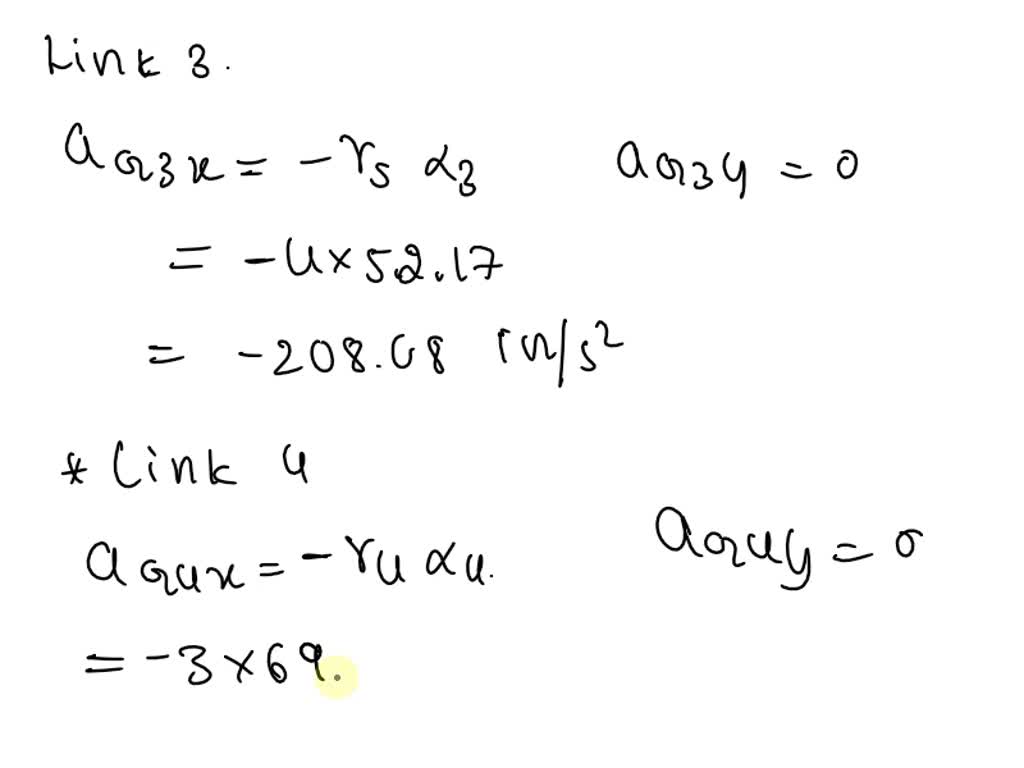 Link 3.
aG3x = -r5 α3 aG3y = 0
= -4×52.17
= -208.68 in/s²
* Link 4
aG4x = -r4 α4. aG4y = 0
= -3×69.